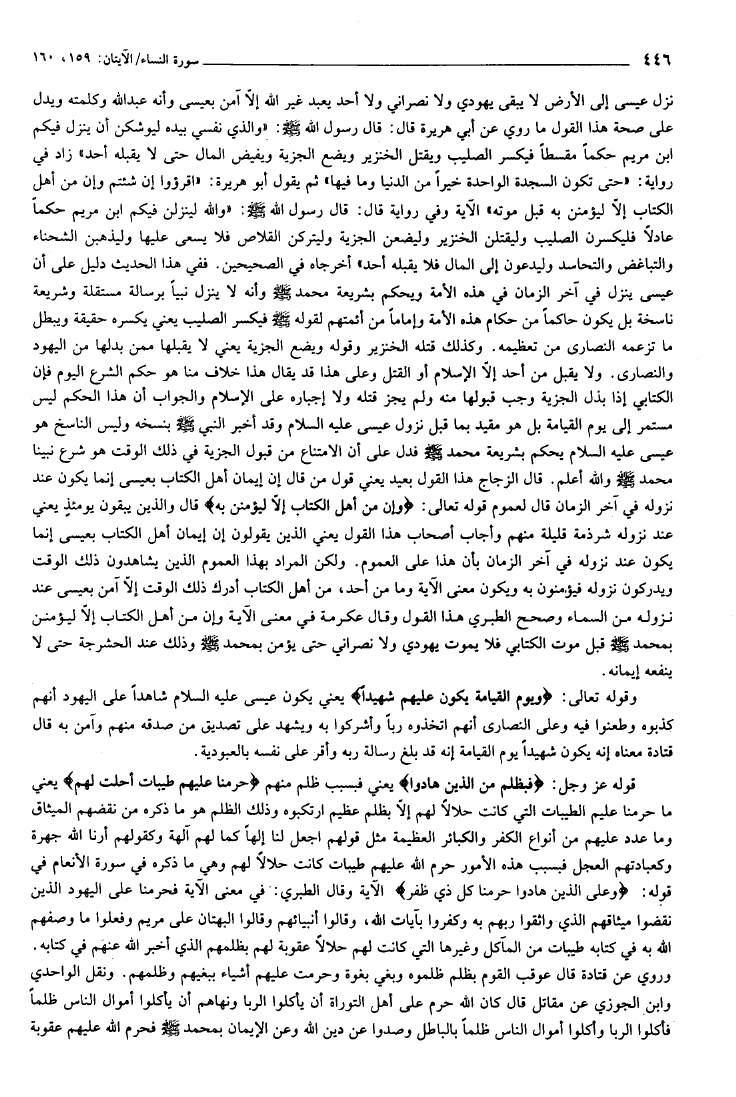 ٤٤٦ سورة النساء/ الآيتان: ١٥٩، ١٦٠
نزل عيسى إلى الأرض لا يبقى يهودي ولا نصراني ولا أحد يعبد غير الله إلاّ آمن بعيسى وأنه عبدالله وكلمته ويدل
على صحة هذا القول ما روي عن أبي هريرة قال: قال رسول الله ﷺ: «والذي نفسي بيده ليوشكن أن ينزل فيكم
ابن مريم حكماً مقسطاً فيكسر الصليب ويقتل الخنزير ويضع الجزية ويفيض المال حتى لا يقبله أحد» زاد في
رواية: «حتى تكون السجدة الواحدة خيراً من الدنيا وما فيها» ثم يقول أبو هريرة: «اقرؤوا إن شئتم وإن من أهل
الكتاب إلاّ ليؤمنن به قبل موته» الآية وفي رواية قال: قال رسول الله ﷺ: «والله لينزلن فيكم ابن مريم حكماً
عادلاً فليكسرن الصليب وليقتلن الخنزير وليضعن الجزية وليتركن القلاص فلا يسعى عليها وليذهبن الشحناء
والتباغض والتحاسد وليدعون إلى المال فلا يقبله أحد» أخرجاه في الصحيحين. ففي هذا الحديث دليل على أن
عيسى ينزل في آخر الزمان في هذه الأمة ويحكم بشريعة محمد ﷺ وأنه لا ينزل نبياً برسالة مستقلة وشريعة
ناسخة بل يكون حاكماً من حكام هذه الأمة وإماماً من أئمتهم لقوله ﷺ فيكسر الصليب يعني يكسره حقيقة ويبطل
ما تزعمه النصارى من تعظيمه. وكذلك قتله الخنزير وقوله ويضع الجزية يعني لا يقبلها ممن بدلها من اليهود
والنصارى. ولا يقبل من أحد إلاّ الإسلام أو القتل وعلى هذا قد يقال هذا خلاف منا هو حكم الشرع اليوم فإن
الكتابي إذا بذل الجزية وجب قبولها منه ولم يجز قتله ولا إجباره على الإسلام والجواب أن هذا الحكم ليس
مستمر إلى يوم القيامة بل هو مقيد بما قبل نزول عيسى عليه السلام وقد أخبر النبي ﷺ بنسخه وليس الناسخ هو
عيسى عليه السلام يحكم بشريعة محمد ﷺ فدل على أن الامتناع من قبول الجزية في ذلك الوقت هو شرع نبينا
محمد ﷺ والله أعلم. قال الزجاج هذا القول بعيد يعني قول من قال إن إيمان أهل الكتاب بعيسى إنما يكون عند
نزوله في آخر الزمان قال لعموم قوله تعالى: ﴿وإن من أهل الكتاب إلاّ ليؤمنن به﴾ قال والذين يبقون يومئذٍ يعني
عند نزوله شرذمة قليلة منهم وأجاب أصحاب هذا القول يعني الذين يقولون إن إيمان أهل الكتاب بعيسى إنما
يكون عند نزوله في آخر الزمان بأن هذا على العموم. ولكن المراد بهذا العموم الذين يشاهدون ذلك الوقت
ويدركون نزوله فيؤمنون به ويكون معنى الآية وما من أحد، من أهل الكتاب أدرك ذلك الوقت إلاّ آمن بعيسى عند
نزوله من السماء وصحح الطبري هذا القول وقال عكرمة في معنى الآية وإن من أهل الكتاب إلاّ ليؤمنن
بمحمد ﷺ قبل موت الكتابي فلا يموت يهودي ولا نصراني حتى يؤمن بمحمد ﷺ وذلك عند الحشرجة حتى لا
ينفعه إيمانه.
وقوله تعالى: ﴿ويوم القيامة يكون عليهم شهيداً﴾ يعني يكون عيسى عليه السلام شاهداً على اليهود أنهم
كذبوه وطعنوا فيه وعلى النصارى أنهم اتخذوه رباً وأشركوا به ويشهد على تصديق من صدقه منهم وآمن به قال
قتادة معناه إنه يكون شهيداً يوم القيامة إنه قد بلغ رسالة ربه وأقر على نفسه بالعبودية.
قوله عز وجل: ﴿فبظلم من الذين هادوا﴾ يعني فبسبب ظلم منهم ﴿حرمنا عليهم طيبات أحلت لهم﴾ يعني
ما حرمنا عليم الطيبات التي كانت حلالاً لهم إلاّ بظلم عظيم ارتكبوه وذلك الظلم هو ما ذكره من نقضهم الميثاق
وما عدد عليهم من أنواع الكفر والكبائر العظيمة مثل قولهم اجعل لنا إلهاً كما لهم آلهة وكقولهم أرنا الله جهرة
وكعبادتهم العجل فبسبب هذه الأمور حرم الله عليهم طيبات كانت حلالاً لهم وهي ما ذكره في سورة الأنعام في
قوله: ﴿وعلى الذين هادوا حرمنا كل ذي ظفر﴾ الآية وقال الطبري: في معنى الآية فحرمنا على اليهود الذين
نقضوا ميثاقهم الذي واثقوا ربهم به وكفروا بآيات الله، وقالوا أنبيائهم وقالوا البهتان على مريم وفعلوا ما وصفهم
الله به في كتابه طيبات من المآكل وغيرها التي كانت لهم حلالاً عقوبة لهم بظلمهم الذي أخبر الله عنهم في كتابه.
وروي عن قتادة قال عوقب القوم بظلم ظلموه وبغي بغوة وحرمت عليهم أشياء ببغيهم وظلمهم. ونقل الواحدي
وابن الجوزي عن مقاتل قال كان الله حرم على أهل التوراة أن يأكلوا الربا ونهاهم أن يأكلوا أموال الناس ظلماً
فأكلوا الربا وأكلوا أموال الناس ظلماً بالباطل وصدوا عن دين الله وعن الإيمان بمحمد ﷺ فحرم الله عليهم عقوبة